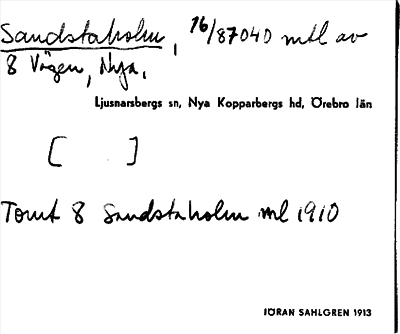 Sandstaholm, 16/87040 mtl av
8 Vägen, Nya.
Ljusnarsbergs sn, Nya Kopparbergs hd, Örebro län
[ ]
Tomt 8 Sandstaholm ml 1910
JÖRAN SAHLGREN 1913